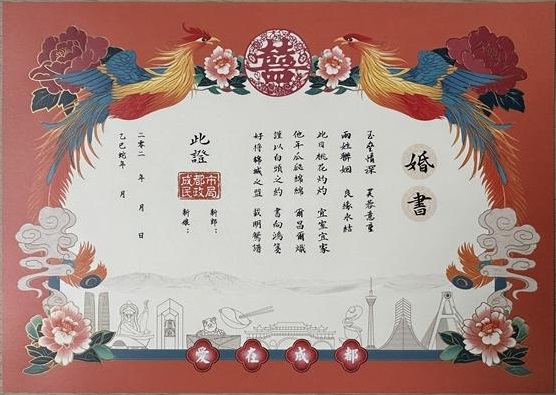 囍
婚書
玉壘情深 芙蓉意重
兩姓聯姻 良緣永結
此日桃花灼灼 宜室宜家
他年瓜瓞綿綿 爾昌爾熾
謹以白頭之約 書向鴻箋
好將錦城之盟 載明鴛譜
此證
新郎：
新娘：
成都市
民政局
二零二 年 月 日
乙巳蛇年 月
愛在成都